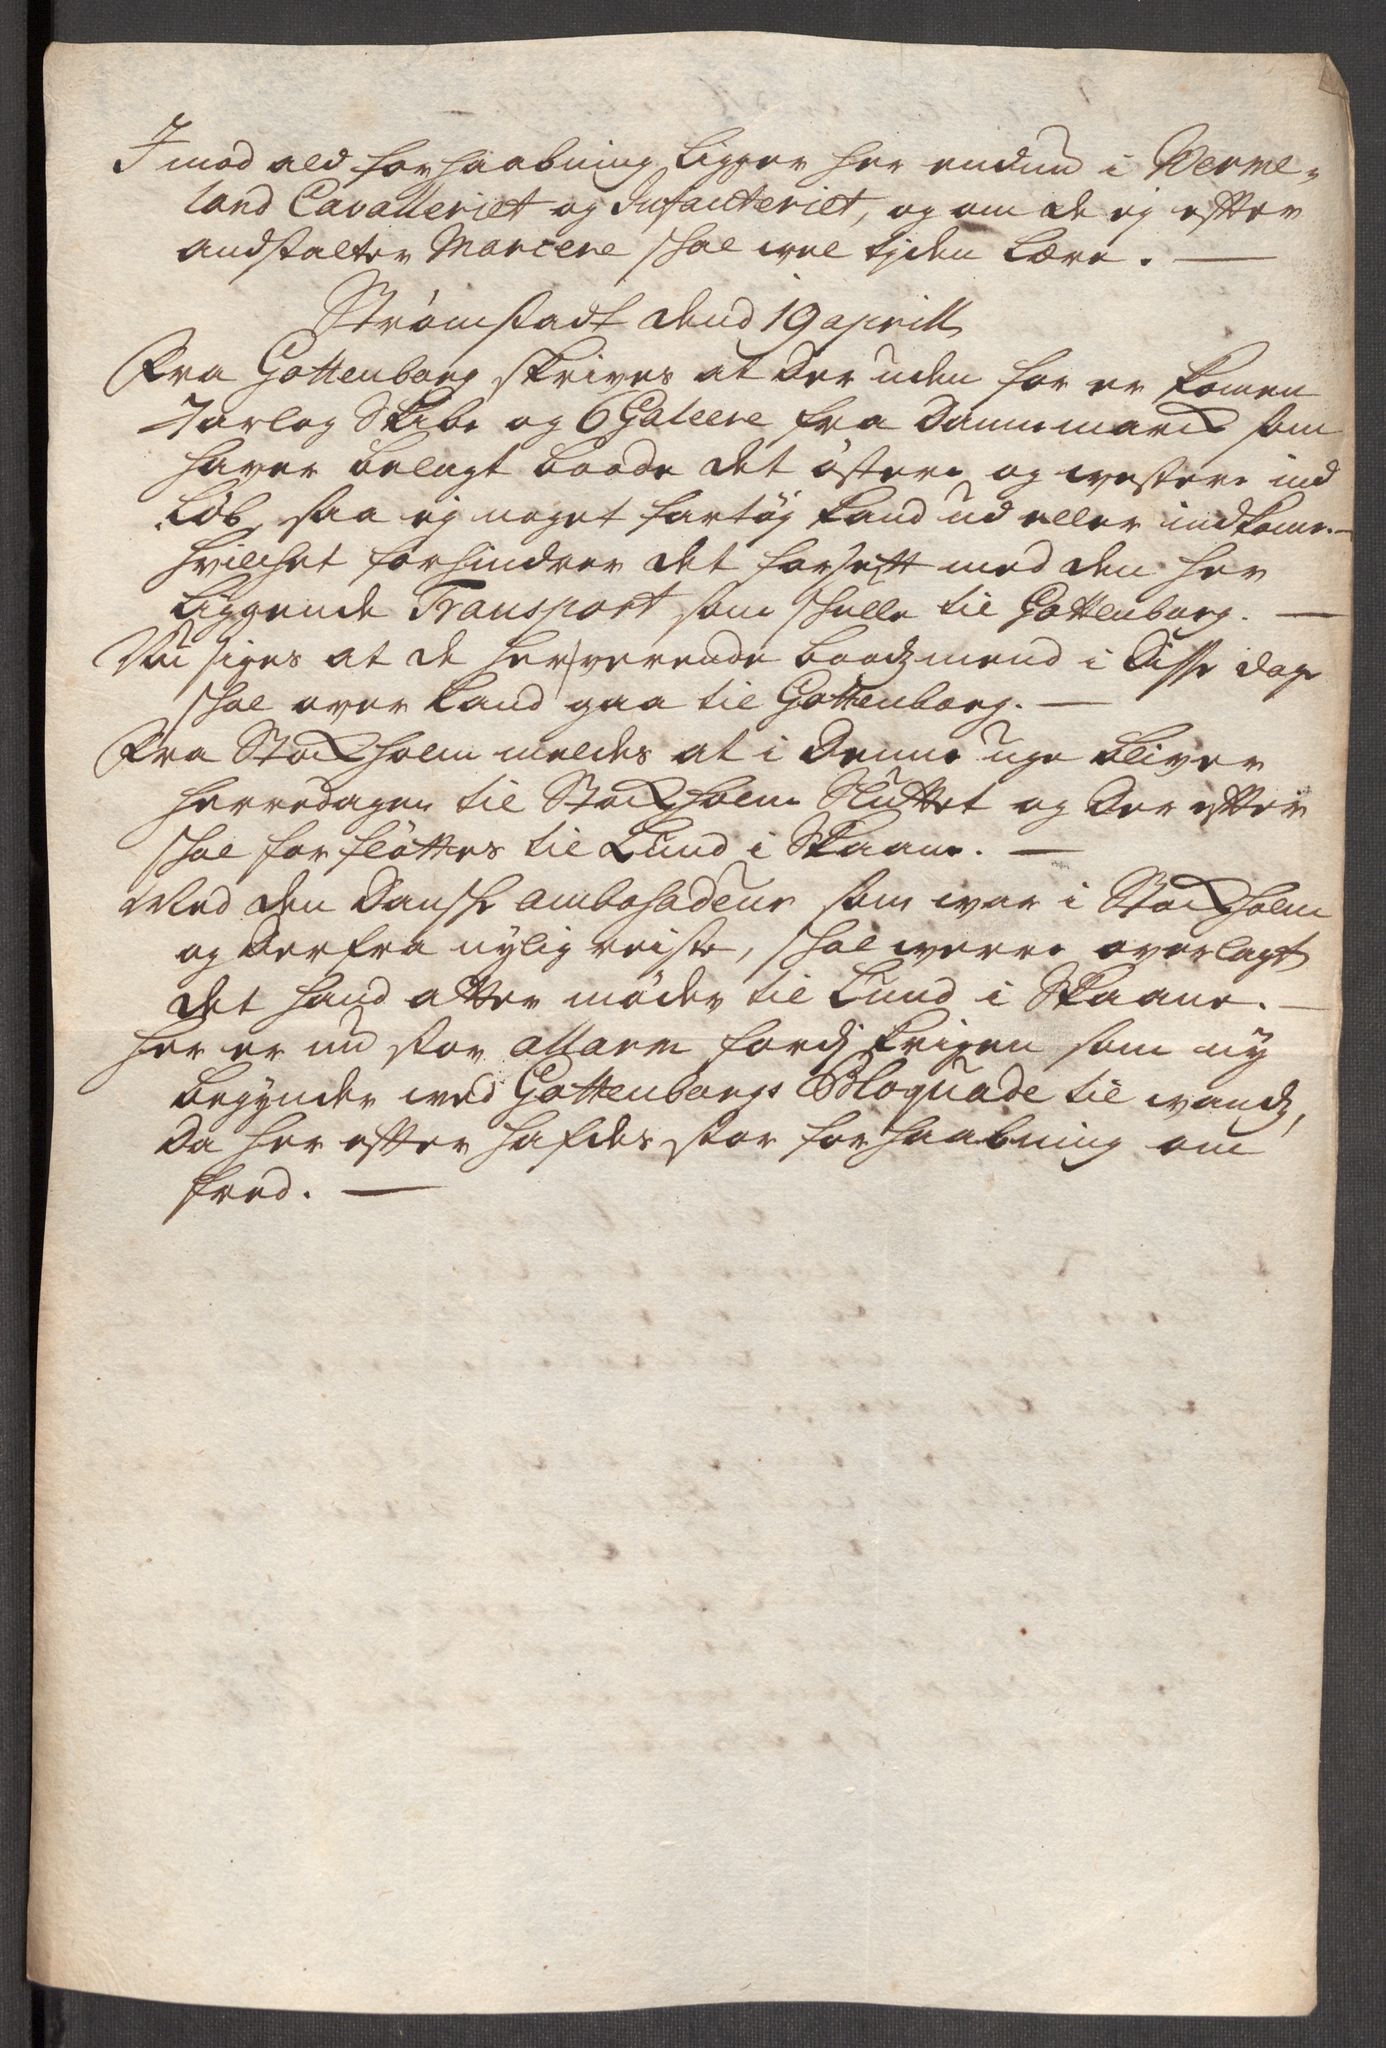 Imod ald forhaabning ligger her endnu i Verme-
land Cavalleriet og Infanteriet, og om de ej efter
andstalter Marcere skal wel tjden lære. —
Strømstadt dend 19 aprill
Fra Gottenborg skrives at der uden for er komen
7 orlog Skibe og 6 Galeere fra Dannemarck som
haver belagt baade det östere og westere ind
löb, saa ej noget fartöj kand ud eller indkome. —
hvilchet forhindrer det forsett med den her
liggende Transport som skulle til Gottenborg. —
Nu siges at de her werende baadzmend i disse dage
skal over land gaa til Gottenborg. —
Fra Stockholm meldes at i denne uge bliver
herredagen til Stockholm Sluttet og der efter
skal forflöttes til Lund i Skaane. —
Med den Danske ambasadeur som war i Stockholm
og derfra nylig reiste, skal werre overlagt
det hand atter möder til Lund i Skaane. —
her er nu stor allarm fordj krigen som ny
begynder wed Gottenborgs Bloquade til wandz,
da her efter hafdes stor forhaabning om
fred. —